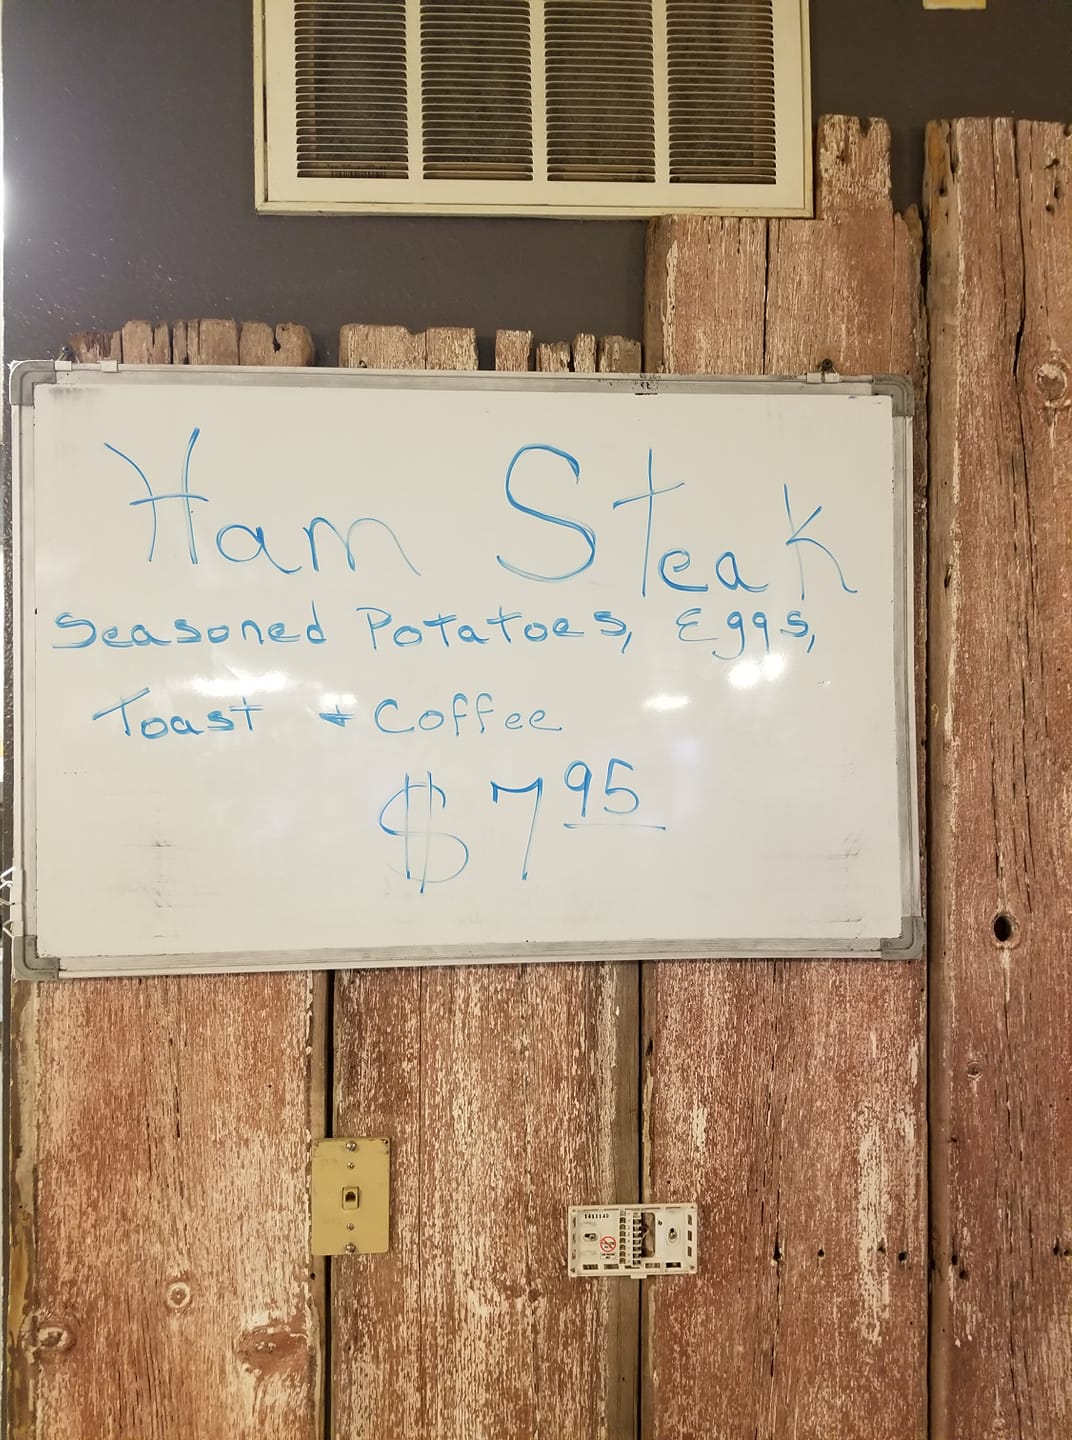 Ham Steak
Seasoned Potatoes, Eggs,
Toast + Coffee
$7.95
1411140